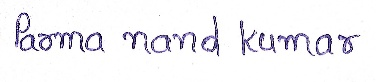 Parma nand kumar